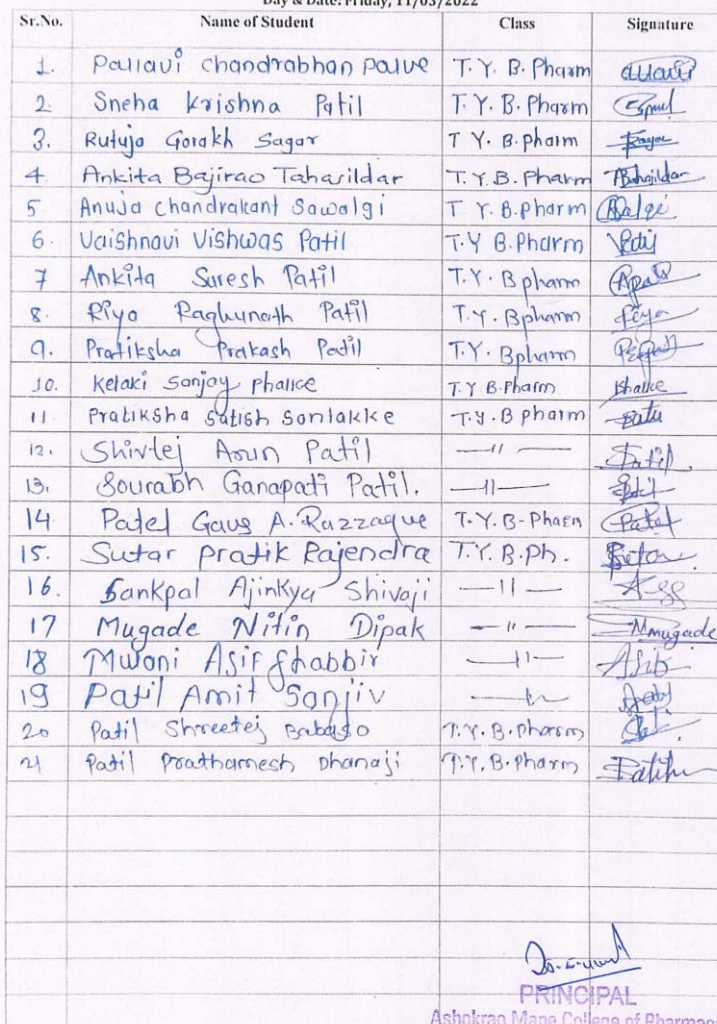 Day & Date: Friday, 11/03/2022
Sr.No. Name of Student Class Signature
1. Pallavi Chandrabhan Palve T. Y. B. Pharm
2. Sneha Krishna Patil T. Y. B. Pharm
3. Rutuja Gorakh Sagar T Y. B. pharm
4. Ankita Bajirao Tahasildar T. Y. B. Pharm ABtahajildar
5 Anuja Chandrakant Sawalgi T Y. B. pharm
6. Vaishnavi Vishwas Patil T. Y B. Pharm
7 Ankita Suresh Patil T. Y. B pharm
8. Riya Raghunath Patil T. Y. Bpharm
9. Pratiksha Prakash Patil T.Y. Bpharm
10. Ketaki Sanjay Phalke T. Y B. Pharm
11. Pratiksha Satish Sonlakke T. Y. B pharm
12. Shivtej Arun Patil —11— Patil
13. Sourabh Ganapati Patil. —11—
14 Patel Gaus A. Razzaque T. Y. B- Phaen Patel
15. Sutar Pratik Rajendra T. Y. B. Ph.
16. Sankpal Ajinkya Shivaji —11—
17 Mugade Nitin Dipak —11— Mmugade
18 Mwani Asif Shabbir —11— Asib
19 Patil Amit Sanjiv —11—
20 Patil Shreetej Babaso T. Y. B. Pharm
21 Patil Prathamesh Dhanaji T. Y. B. Pharm
PRINCIPAL
Ashokrao Mane College of Pharmac